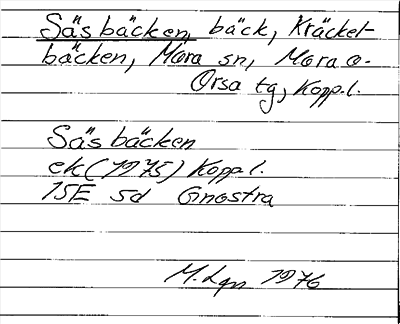 Säsbäcken, bäck, Kräckel-
bäcken, Mora sn, Mora o.
Orsa tg, Kopp.l.
Säsbäcken
ek (1975) Kopp.l.
15E 5d Gnostra
M.Lgn 1976